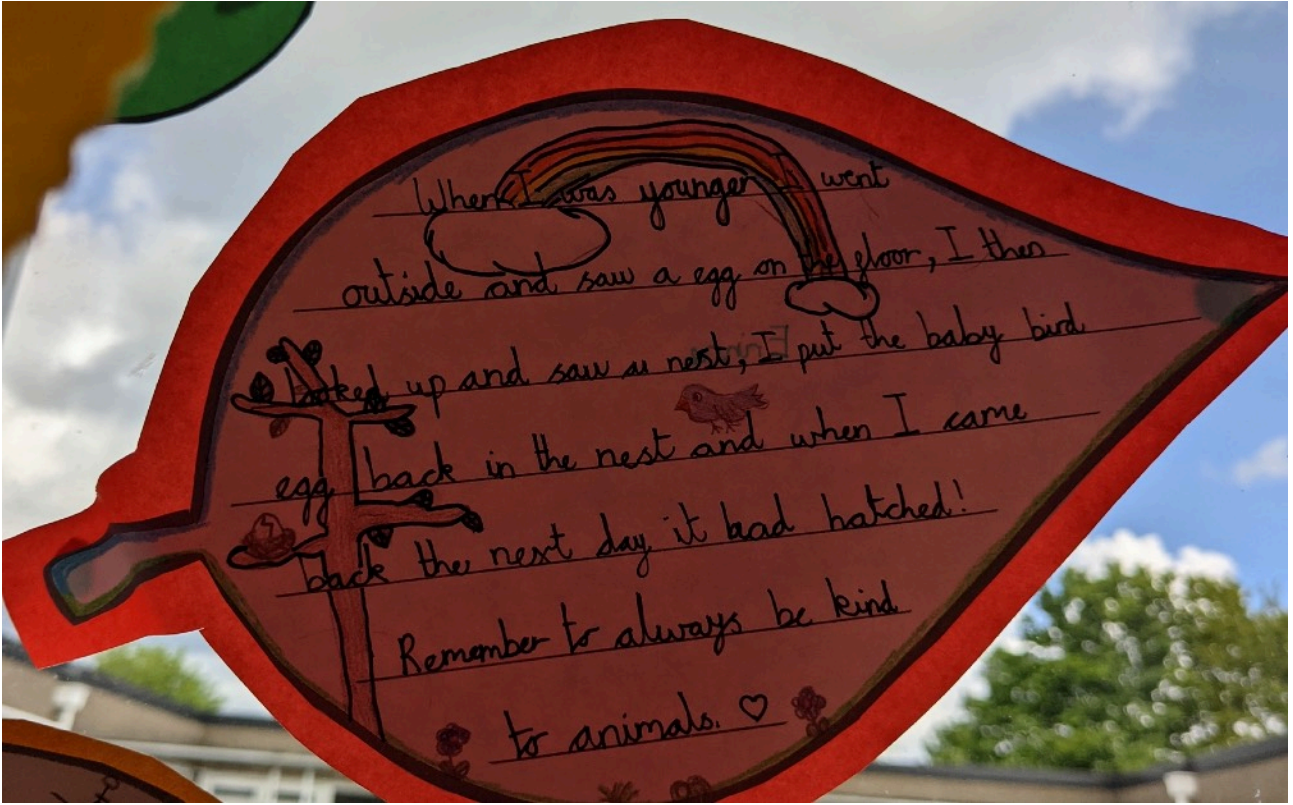 When I was younger I went
outside and saw a egg on the floor, I then
looked up and saw a nest, I put the baby bird
egg back in the nest and when I came
back the next day it had hatched!
Remember to always be kind
to animals. ♡